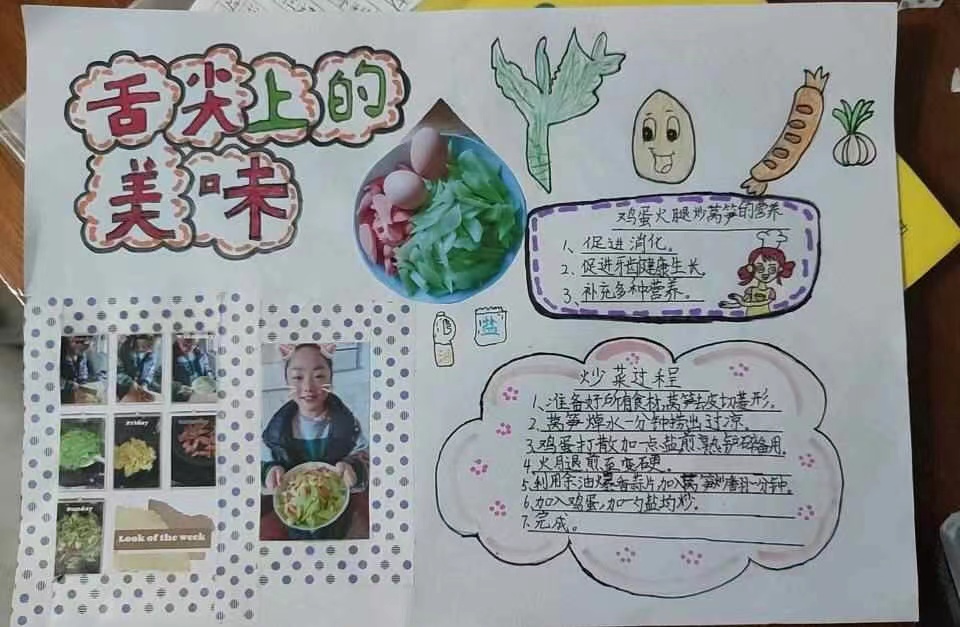 舌尖上的
美味
鸡蛋火腿炒莴笋的营养
1、促进消化。
2、促进牙齿健康生长。
3、补充多种营养。
油
盐
炒菜过程
1、准备好所有食材,莴笋去皮切菱形。
2、莴笋焯水一分钟捞出过凉。
3、鸡蛋打散加一点盐煎熟铲碎备用。
4、火腿煎至变硬。
5、利用余油爆香蒜片,加入莴笋炒磨一分钟。
6、加入鸡蛋,加一勺盐均炒。
7、完成。
Friday
Sunday
Look of the week